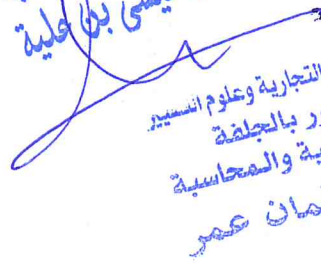 عيسى بن علية
التجارية وعلوم التسيير
ر بالجلفة
ية والمحاسبة
مان عمر